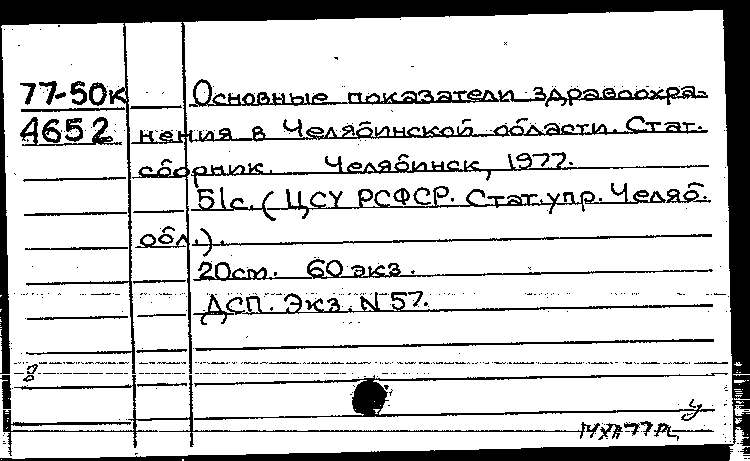 77-50к Основные показатели здравоохра-
4652 нения в Челябинской области. Стат.
сборник. Челябинск, 1977.
51с. (ЦСУ РСФСР. Стат.упр. Челяб.
обл.).
20см. 60 экз.
ДСП. Экз. N 57.
8